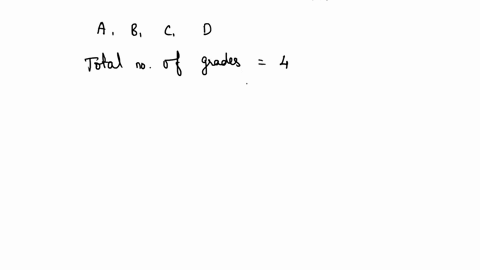 A, B, C, D
Total no. of grades = 4